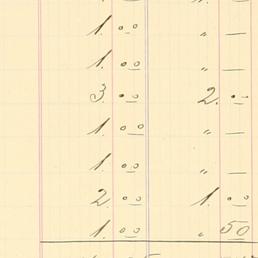 1. 00 " —
1. 00 " —
3. 00 2. —
1. 00 " —
1. 00 " —
2. 00 1. 00
1. 00 " 50